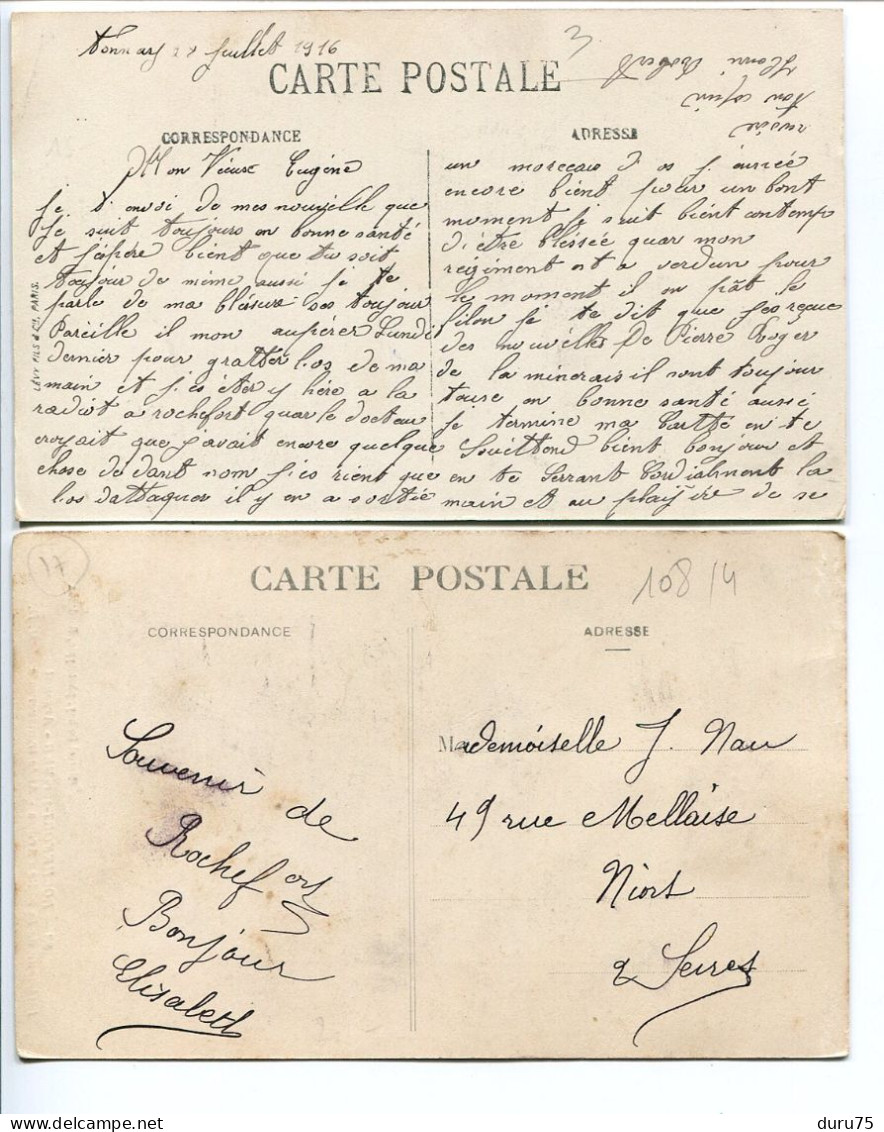 Tonnay 27 juillet 1916
3
CARTE POSTALE
CORRESPONDANCE
ADRESSE
Mon Vieux Eugène
je t'envoi de mes nouvelle que
je suit toujours en bonne santé
et j'èspère bient que tu soit
toujour de même aussi je te
parle de ma blésure ses toujour
Pareille il mon aupérer Lundi
dernier pour gratter l'os de ma
main et j'es èter y hére a la
radiot a rochefort quar le docteur
croyait que j'avait encore quelque
chose de dant nom j'es rient que
l'os d'attaquer il y en a sortie
un morceau d'os j'aurée
encore bient pour un bont
moment je suit bient contemp
d'être blessée quar mon
régiment est a verdun pour
le moment il en pât le
filon je te dit que j'es reçue
des nouvelles De Pierre Roger
de la minerais il sont toujour
tousse en bonne santé aussi
je termine ma Cartte en te
Souèttend bient bonjour et
en te Serrant Cordialment la
main et au plaisire de se
revoire
ton copin
Henri Robert
LÉVY FILS & Cie. PARIS.
17
CARTE POSTALE
108/4
CORRESPONDANCE
ADRESSE
Souvenir de
Rochefort
Bonjour
Elisabeth
Mademoiselle J. Nau
49 rue Mellaise
Niort
2 Sevres
duru75